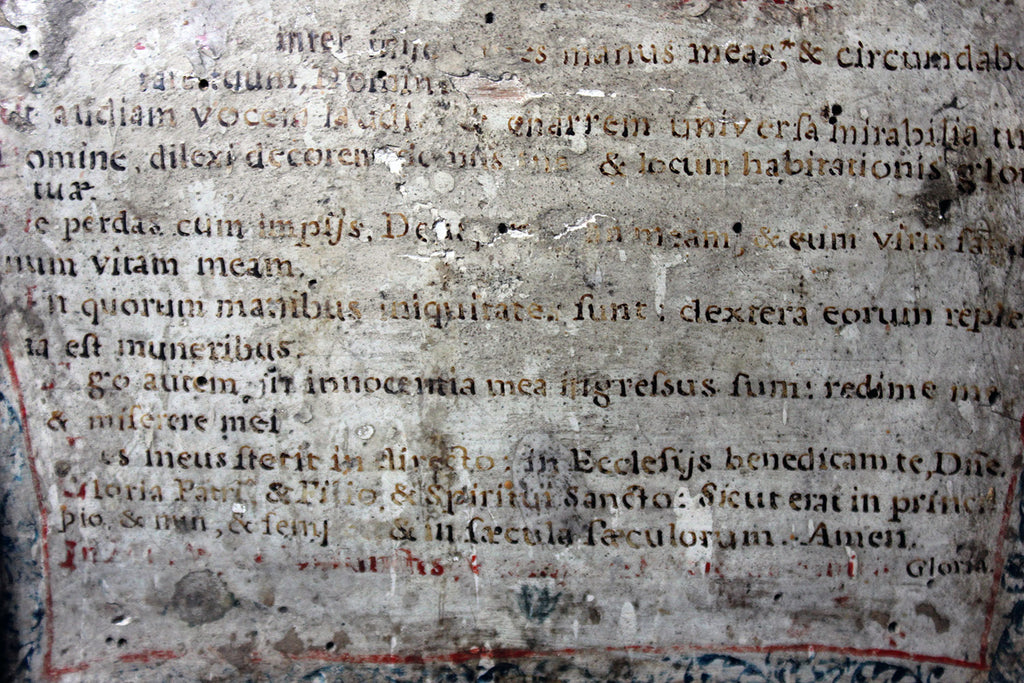 inter manus meas, & circumdabo
altare tuum, Domin
Ut audiam vocem laudis & enarrem universa mirabilia tu
omine, dilexi decorem & locum habitationis glor
tuæ.
e perdas cum impijs, Deus, meam, & cum viris
num vitam meam.
In quorum manibus iniquitates sunt: dextera eorum reple
ta est muneribus.
go autem in innocentia mea ingressus sum: redime me,
& miserere mei
es meus stetit in directo: in Ecclesijs benedicam te, Dñe.
Gloria Patri, & Filio, & Spiritui Sancto: Sicut erat in princi
pio, & nun, & semp & in sæcula sæculorum. Amen.
Gloria